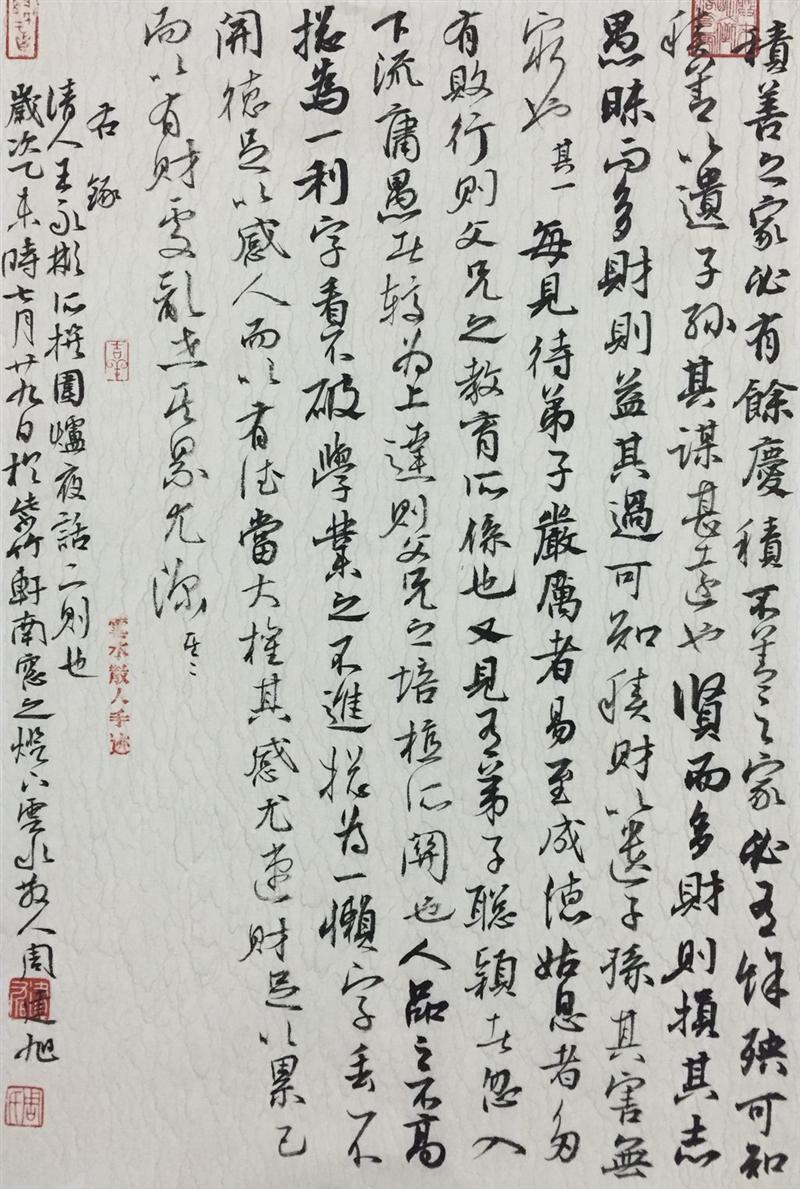 積善之家必有餘慶積不善之家必有餘殃可知
積善以遺子孫其謀甚遠也賢而多財則損其志
愚昧而多財則益其過可知積財以遺子孫其害無
窮也其一每見待弟子嚴厲者易至成德姑息者多
有敗行則父兄之教育所係也又見有弟子聰穎者忽入
下流庸愚者較為上達則父兄之培植所關也人品之不高
總為一利字看不破學業之不進總為一懶字丟不
開德足以感人而以有德當大權其感尤速財足以累己
而以有財處亂世其累尤深其二
右錄
清人王永彬所撰圍爐夜話二則也
歲次乙未時七月廿九日於紫竹軒南窗之燈下雲水散人周建旭
吉生
雲水散人手迹